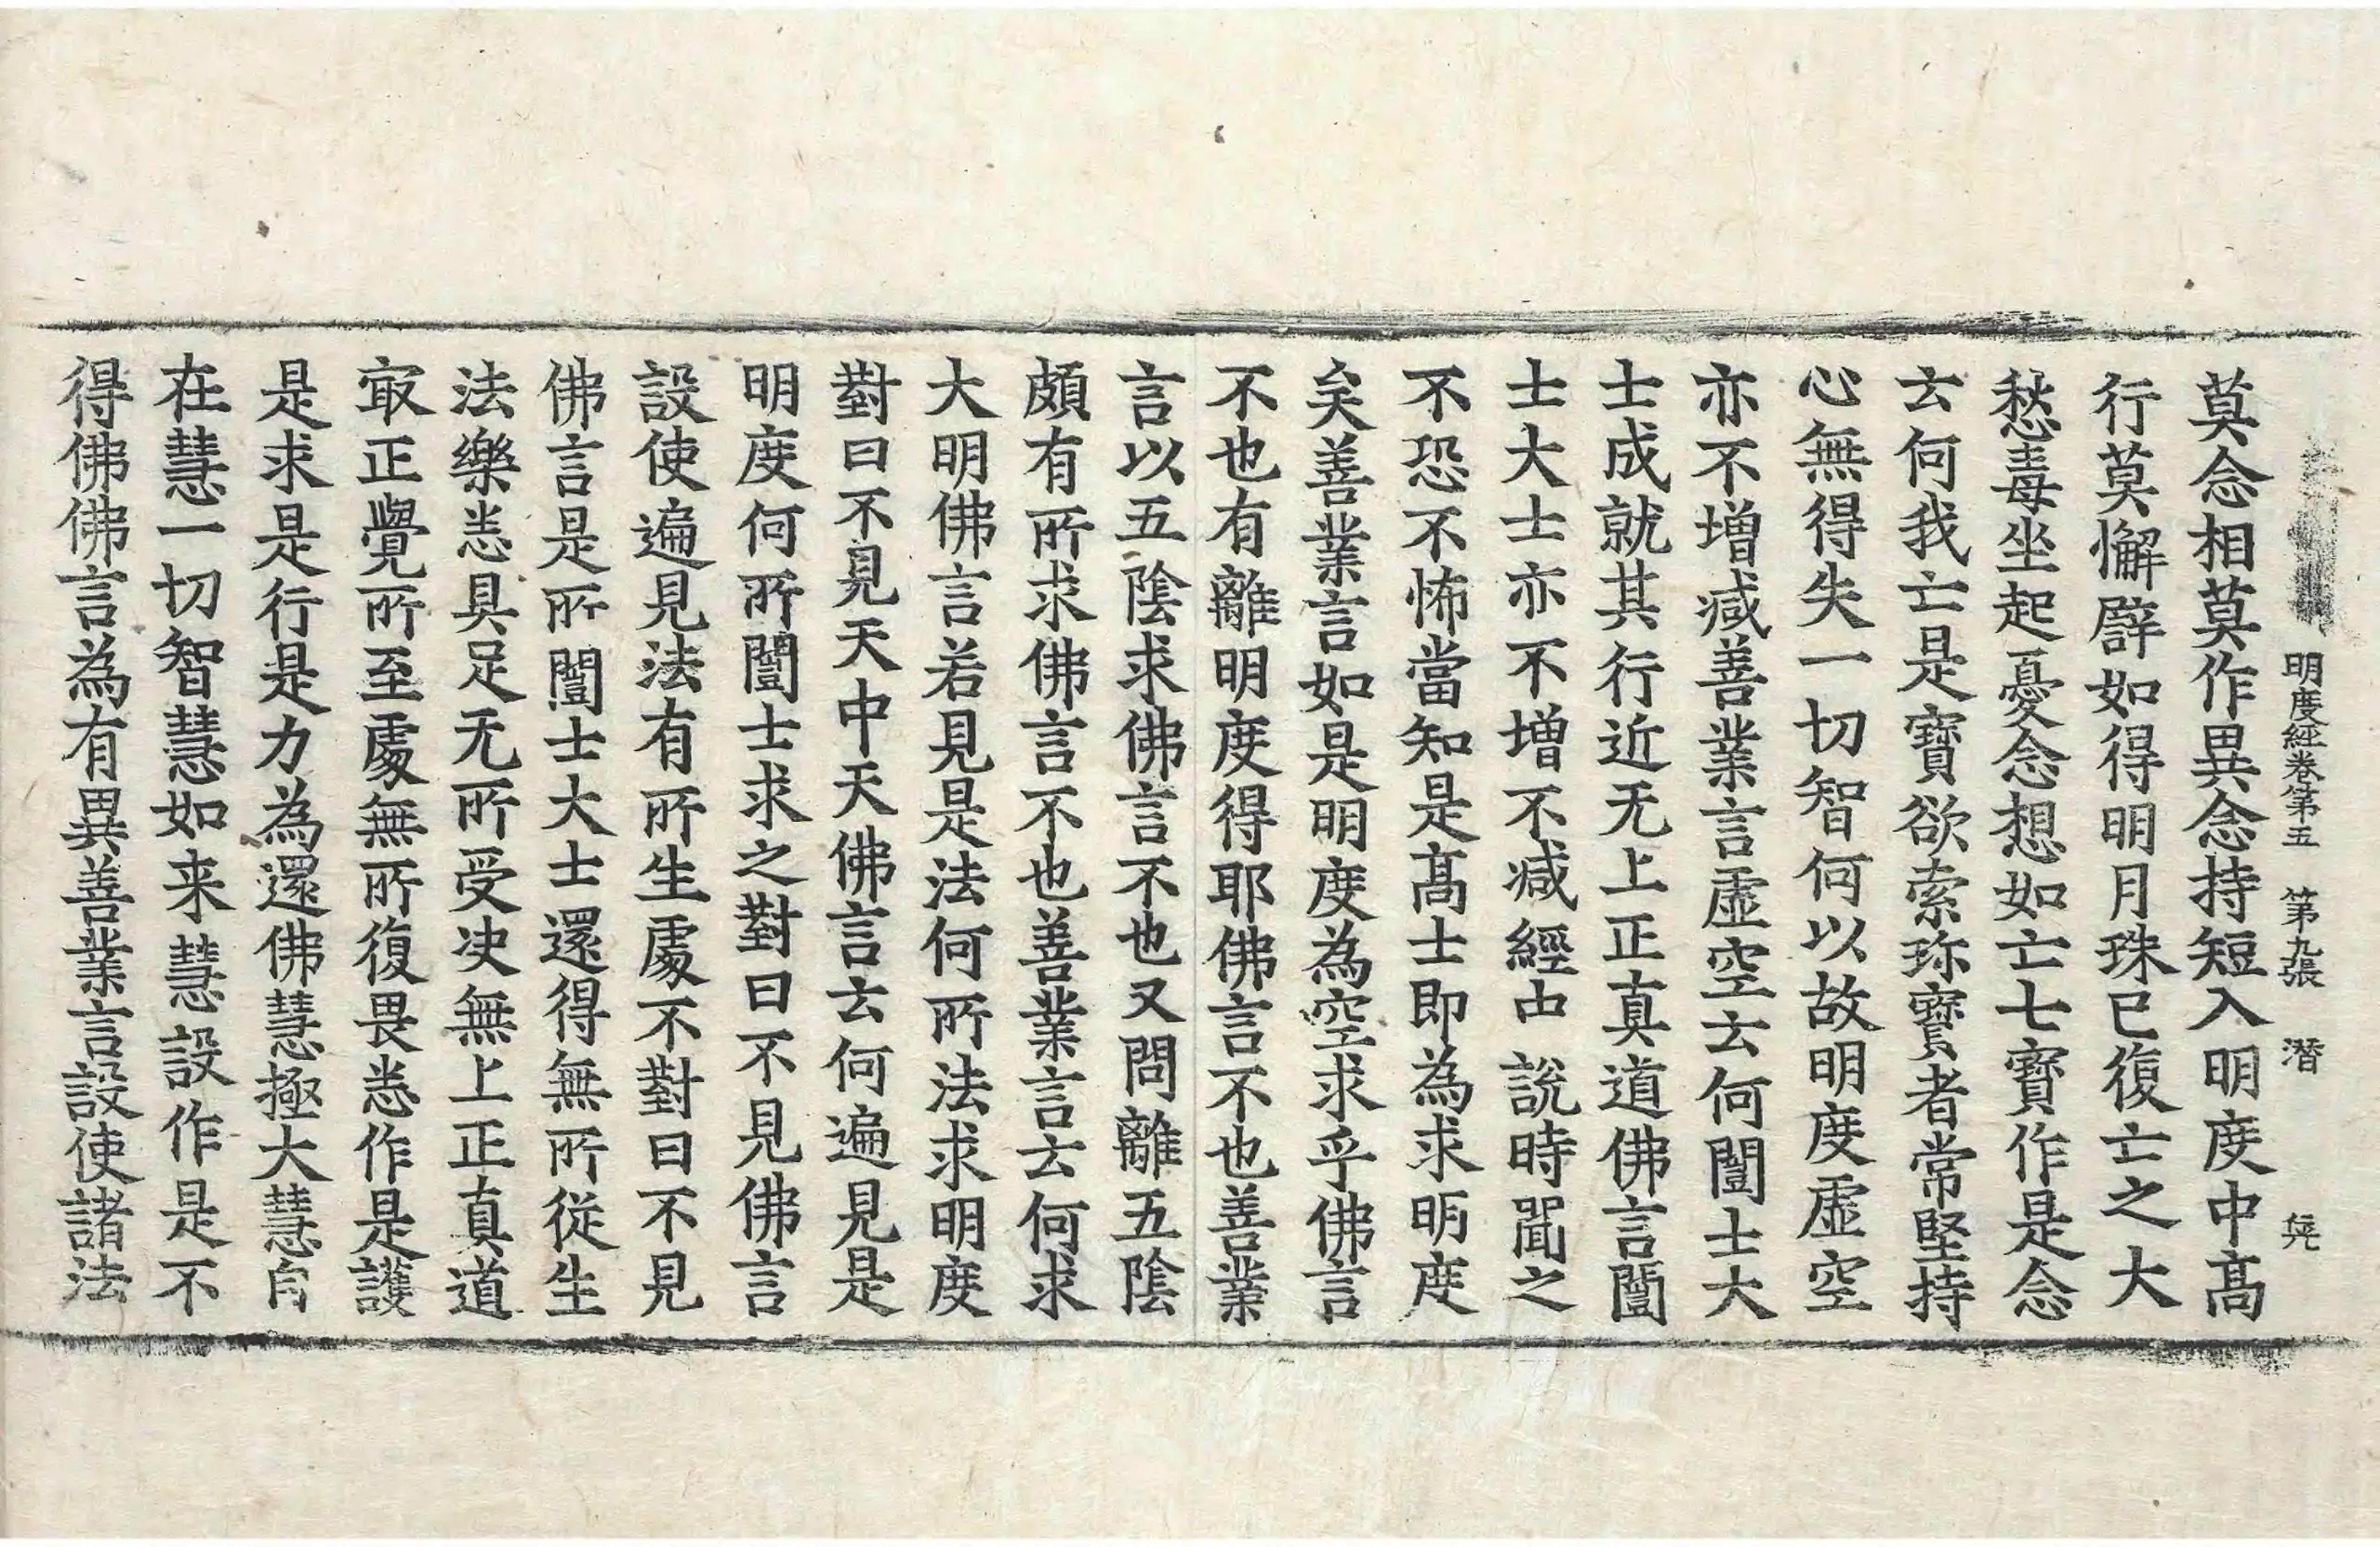 明度經卷第五 第九張 潛
莫念相莫作異念持短入明度中髙
行莫懈譬如得明月珠已復亡之大
愁毒坐起憂念想如亡七寶作是念
云何我亡是寶欲索珎寶者常堅持
心無得失一切智何以故明度虛空
亦不增减善業言虛空云何闓士大
士成就其行近无上正真道佛言闓
士大士亦不增不减經中說時聞之
不恐不怖當知是髙士即為求明度
矣善業言如是明度為空求乎佛言
不也有離明度得耶佛言不也善業
言以五陰求佛言不也又問離五陰
頗有所求佛言不也善業言云何求
大明佛言若見是法何所法求明度
對曰不見天中天佛言云何遍見是
明度何所闓士求之對曰不見佛言
設使遍見法有所生處不對曰不見
佛言是所闓士大士還得無所從生
法樂悉具足无所受决無上正真道
㝡正覺所至處無所復畏悉作是護
是求是行是力為還佛慧極大慧自
在慧一切智慧如来慧設作是不
得佛佛言為有異善業言設使諸法